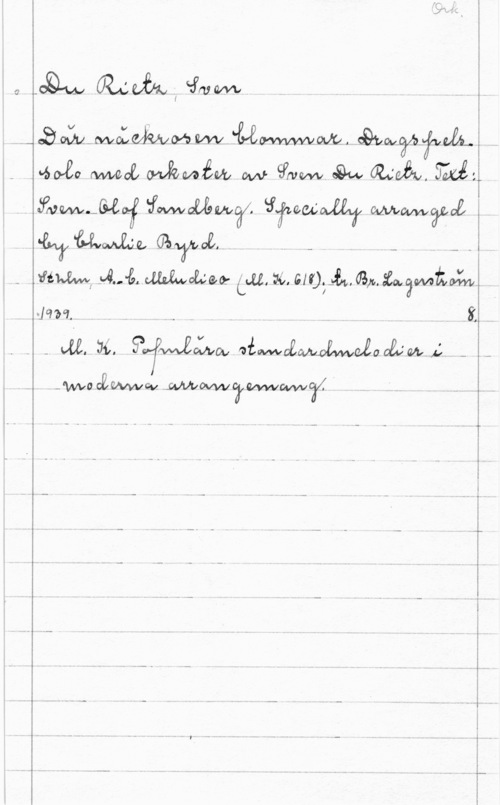 Ork.
Du Rietz, Sven
Där näckrosen blommar. Dragspels-
solo med orkester av Sven Du Rietz. Text:
Sven-Olof Sandberg. Specially arranged
by Charlie Byrd.
Sthlm, A.-B. Meludico (M. K. 618); tr. Br. Lagerström
1939. 8.
M. K. Populära standardmelodier i
moderna arrangemang.